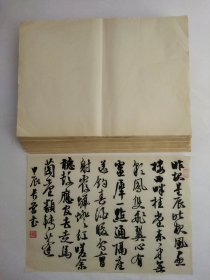 昨夜星辰昨夜風畫
樓西畔桂堂東身無
彩鳳雙飛翼心有
靈犀一點通隔座
送鈎春酒暖分曹
射覆蠟燈紅嗟余
聽鼓應官去走馬
蘭臺類轉蓬
甲辰